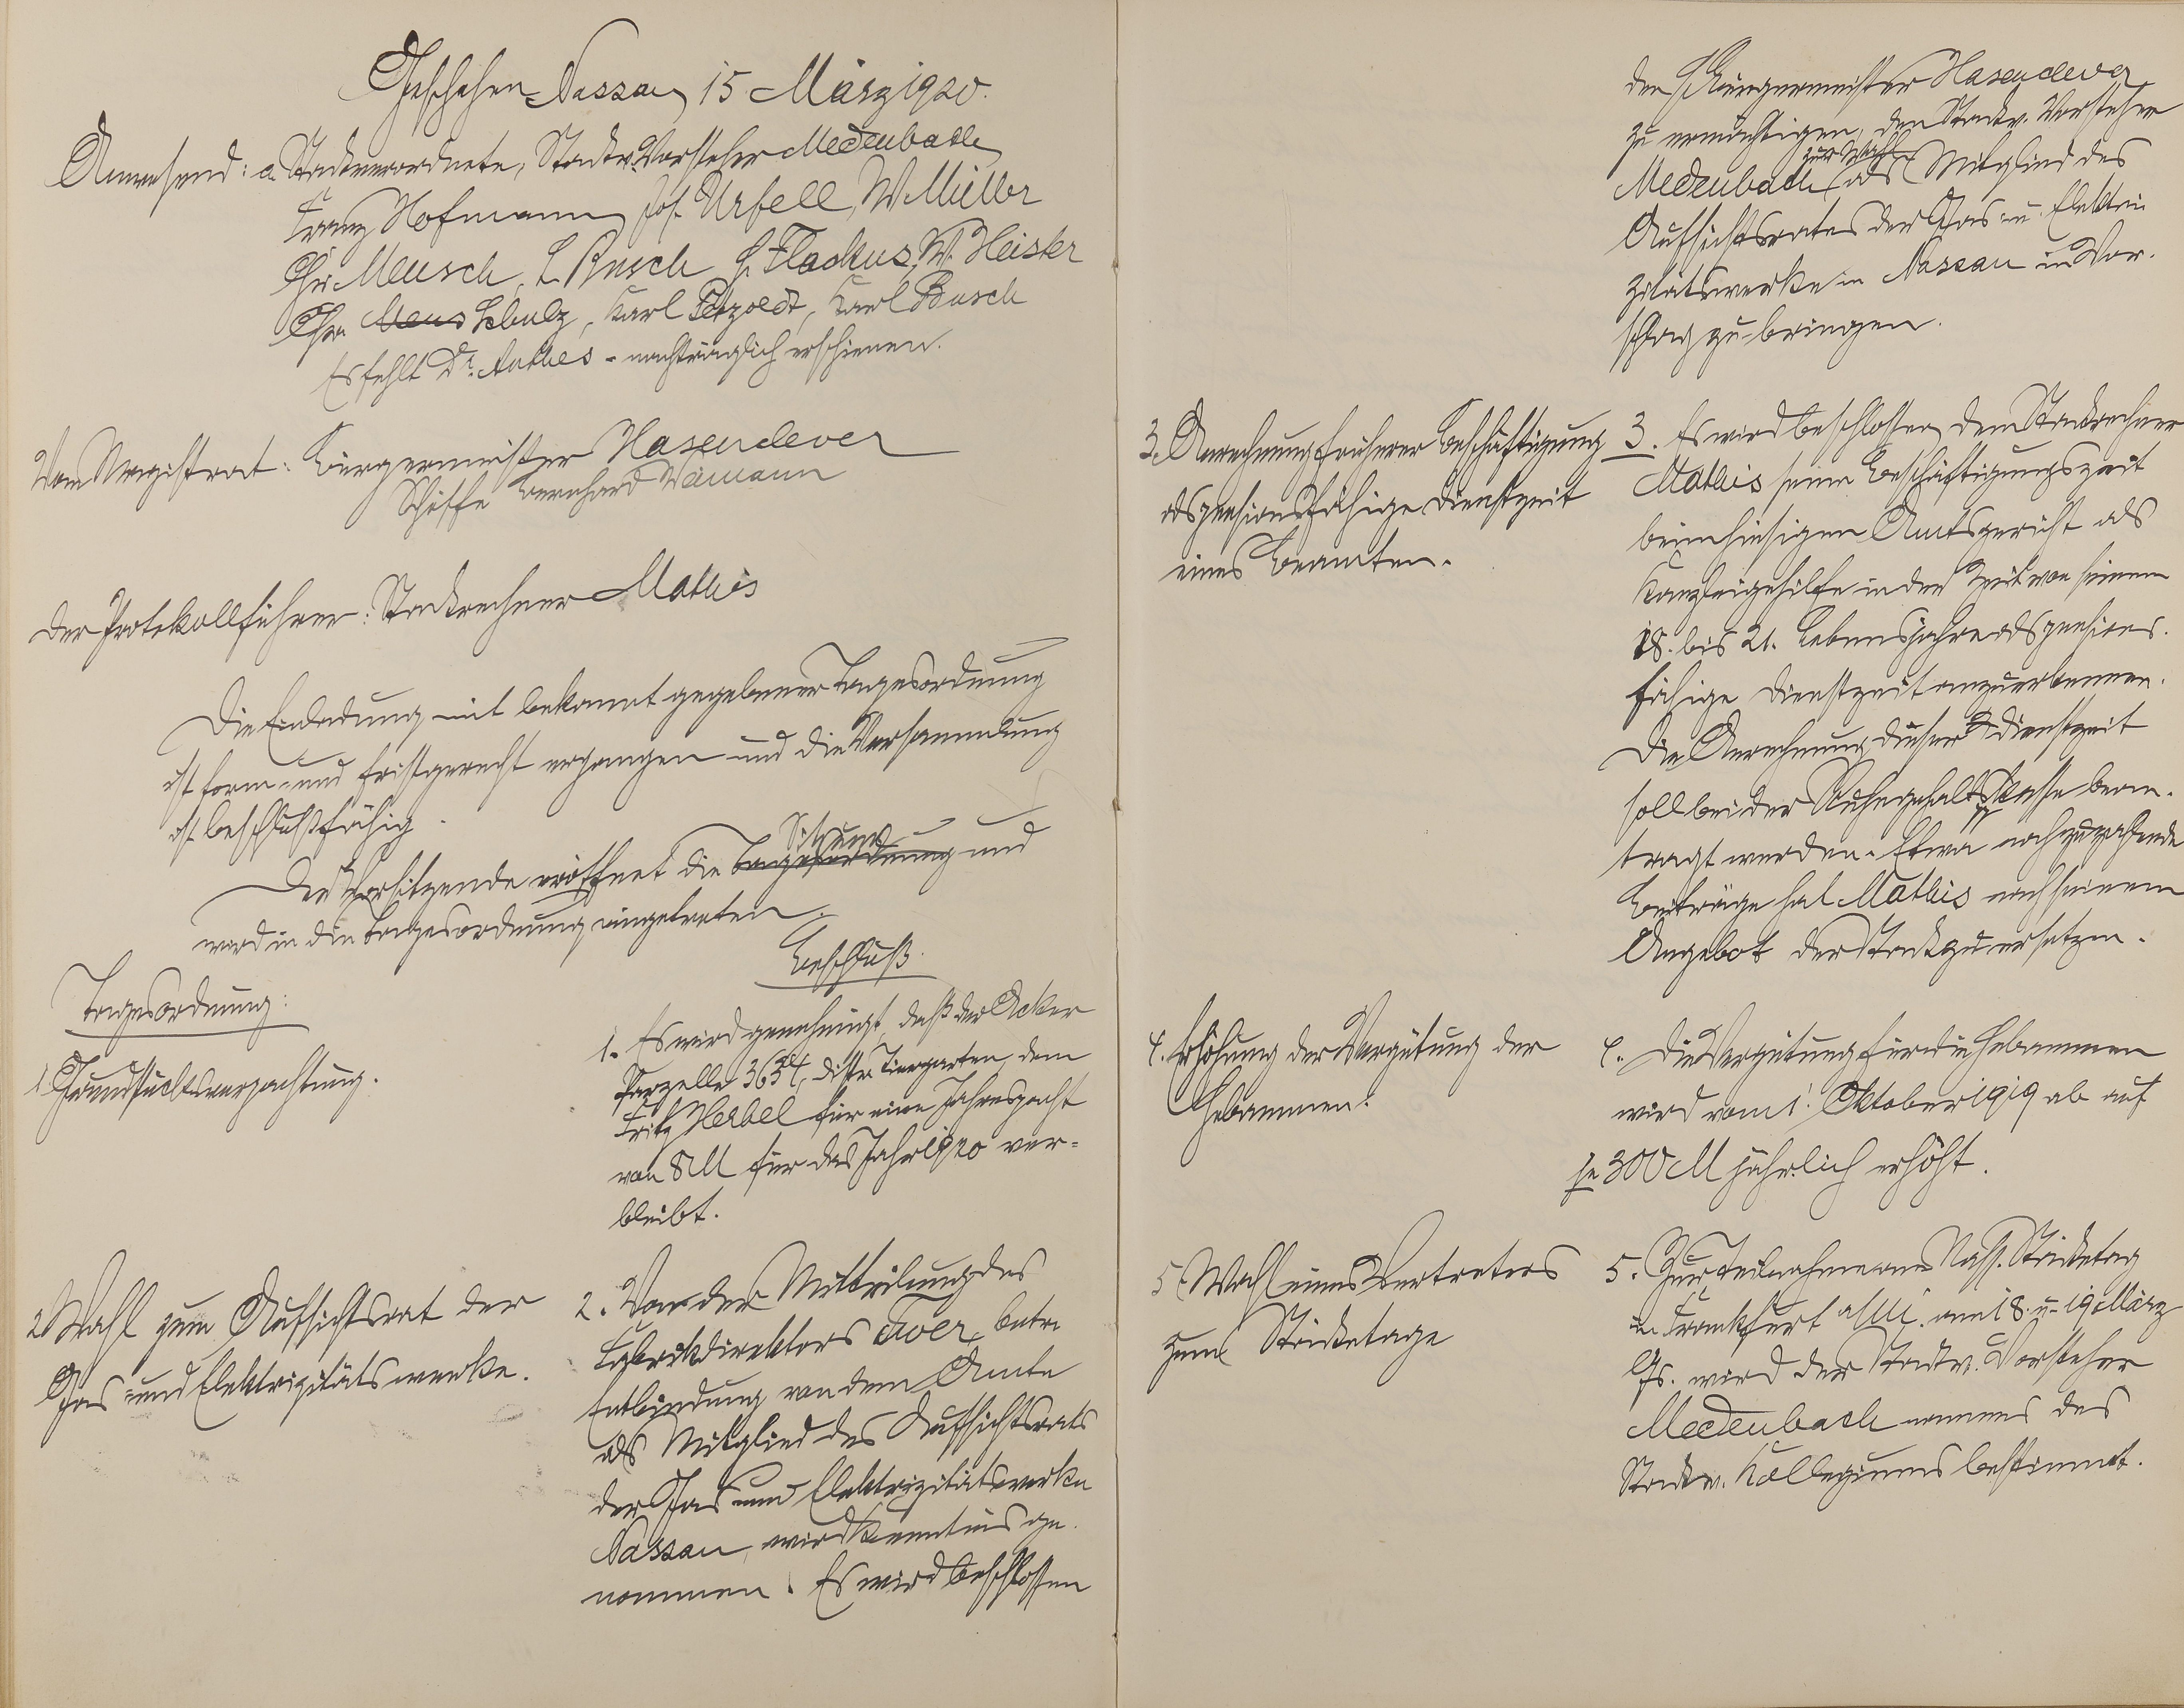 Geschehen Nassau, 15 März 1920.
Anwesend: a. Stadtverordnete, Stadtv. Vorsteher Medenbach
Franz Hofmann, Jos. Urfell, W. Müller
Chr. Mensch, L. Busch, H. Flackus, W. Heister
Chr. Mens Schulz, Karl Petzoldt, Karl Busch
Es fehlt Dr. Anthes - nachträglich erschienen.
Vom Magistrat: Bürgermeister Hasenclever
Schöffe Bernhard
Der Protokollführer: Stadtrechner Mathis
Die Einladung mit bekannt gegebener Tagesordnung
ist form- und fristgerecht ergangen und die Versammlung
ist beschlußfähig.
Der Vorsitzende eröffnet die Tagesordnung Sitzung und
wird in die Tagesordnung eingetreten.
Beschluß.
Tagesordnung:
1. Grundstücksverpachtung.
1. Es wird genehmigt, daß der Acker
Parzelle Distr. Tiergarten, dem
Fritz Herbel für eine Jahrespacht
von 8 M für das Jahr 1920 ver-
bleibt.
2. Wahl zum Aufsichtsrat der
Gas- und Elektrizitätswerke.
2. Von der Mitteilung des
Fabrikdirektors betr.
Entbindung von dem Amte
als Mitglied des Aufsichtsrats
der Gas und Elektrizitätswerke
Nassau, wird Kenntnis ge-
nommen. Es wird beschlossen
den H. Bürgermeister Hasenclever
zu ermächtigen, den Stadtv. Vorsteher
Medenbach zur Wahl als Mitglied des
Aufsichtsrates der Gas- u. Elektri
zitätswerke in Nassau in Vor-
schlag zu bringen.
3. Anrechnung früherer Beschäftigung
als pensionsfähige Dienstzeit
eines Beamten.
3. Es wird beschlossen, dem Stadtrechner
Mathis seine Beschäftigungszeit
beim hiesigen Amtsgericht als
Kanzleigehilfe in der Zeit von seinem
18. bis 21. Lebensjahre als pensions-
fähige Dienstzeit anzuerkennen.
Die Anrechnung dieser Dienstzeit
soll bei der Ruhegehaltskasse bean-
tragt werden. Etwa nachzuzahlende
Beiträge hat Mathis nach seinem
Angebot der Stadt zu ersetzen.
4. Erhöhung der Vergütung der
Hebammen.
4. Die Vergütung für die Hebammen
wird vom 1. Oktober 1919 ab auf
je 300 M jährlich erhöht.
5. Wahl eines Vertreters
zum Städtetage
5. Zur Teilnahme am Nass. Städtetag
in Frankfurt a/M. am 18. u. 19. März
Js. wird der Stadtv. Vorsteher
Medenbach namens des
Stadtv. Kollegiums bestimmt.